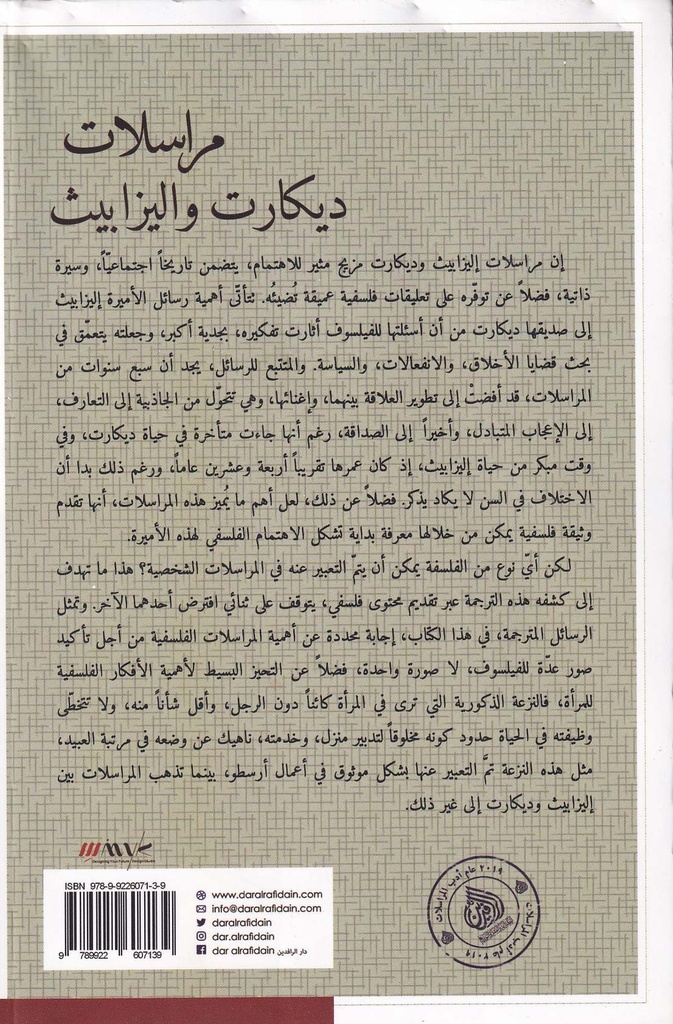 مراسلات
ديكارت واليزابيث
إن مراسلات إليزابيث وديكارت مزيج مثير للاهتمام، يتضمن تاريخاً اجتماعيّاً، وسيرة
ذاتية، فضلاً عن توفّره على تعليقات فلسفية عميقة تُضيئُه. تتأتّى أهمية رسائل الأميرة إليزابيث
إلى صديقها ديكارت من أن أسئلتها للفيلسوف أثارت تفكيره، بجدية أكبر، وجعلته يتعمّق في
بحث قضايا الأخلاق، والانفعالات، والسياسة. والمتتبع للرسائل، يجد أن سبع سنوات من
المراسلات، قد أفضتْ إلى تطوير العلاقة بينهما، وإغنائها، وهي تتحوّل من الجاذبية إلى التعارف،
إلى الإعجاب المتبادل، وأخيراً إلى الصداقة، رغم أنها جاءت متأخرة في حياة ديكارت، وفي
وقت مبكر من حياة إليزابيث، إذ كان عمرها تقريباً أربعة وعشرين عاماً، ورغم ذلك بدا أن
الاختلاف في السن لا يكاد يذكر. فضلاً عن ذلك، لعل أهم ما يُميز هذه المراسلات، أنها تقدم
وثيقة فلسفية يمكن من خلالها معرفة بداية تشكل الاهتمام الفلسفي لهذه الأميرة.
لكن أيّ نوع من الفلسفة يمكن أن يتمّ التعبير عنه في المراسلات الشخصية؟ هذا ما تهدف
إلى كشفه هذه الترجمة عبر تقديم محتوى فلسفي، يتوقف على ثنائي افترض أحدهما الآخر. وتمثل
الرسائل المترجمة، في هذا الكتاب، إجابة محددة عن أهمية المراسلات الفلسفية من أجل تأكيد
صور عدّة للفيلسوف، لا صورة واحدة، فضلاً عن التحيز البسيط لأهمية الأفكار الفلسفية
للمرأة، فالنزعة الذكورية التي ترى في المرأة كائناً دون الرجل، وأقل شأناً منه، ولا تتخطّى
وظيفته في الحياة حدود كونه مخلوقاً لتدبير منزل، وخدمته، ناهيك عن وضعه في مرتبة العبيد،
مثل هذه النزعة تمَّ التعبير عنها بشكل موثوق في أعمال أرسطو، بينما تذهب المراسلات بين
إليزابيث وديكارت إلى غير ذلك.
ISBN 978-9-9226071-3-9
9 789922 607139
www.daralrafidain.com
info@daralrafidain.com
daralrafidain
dar.alrafidain
dar alrafidain دار الرافدين
٢٠١٩ عام أدب المراسلات
٢٠١٩ عام أدب المراسلات